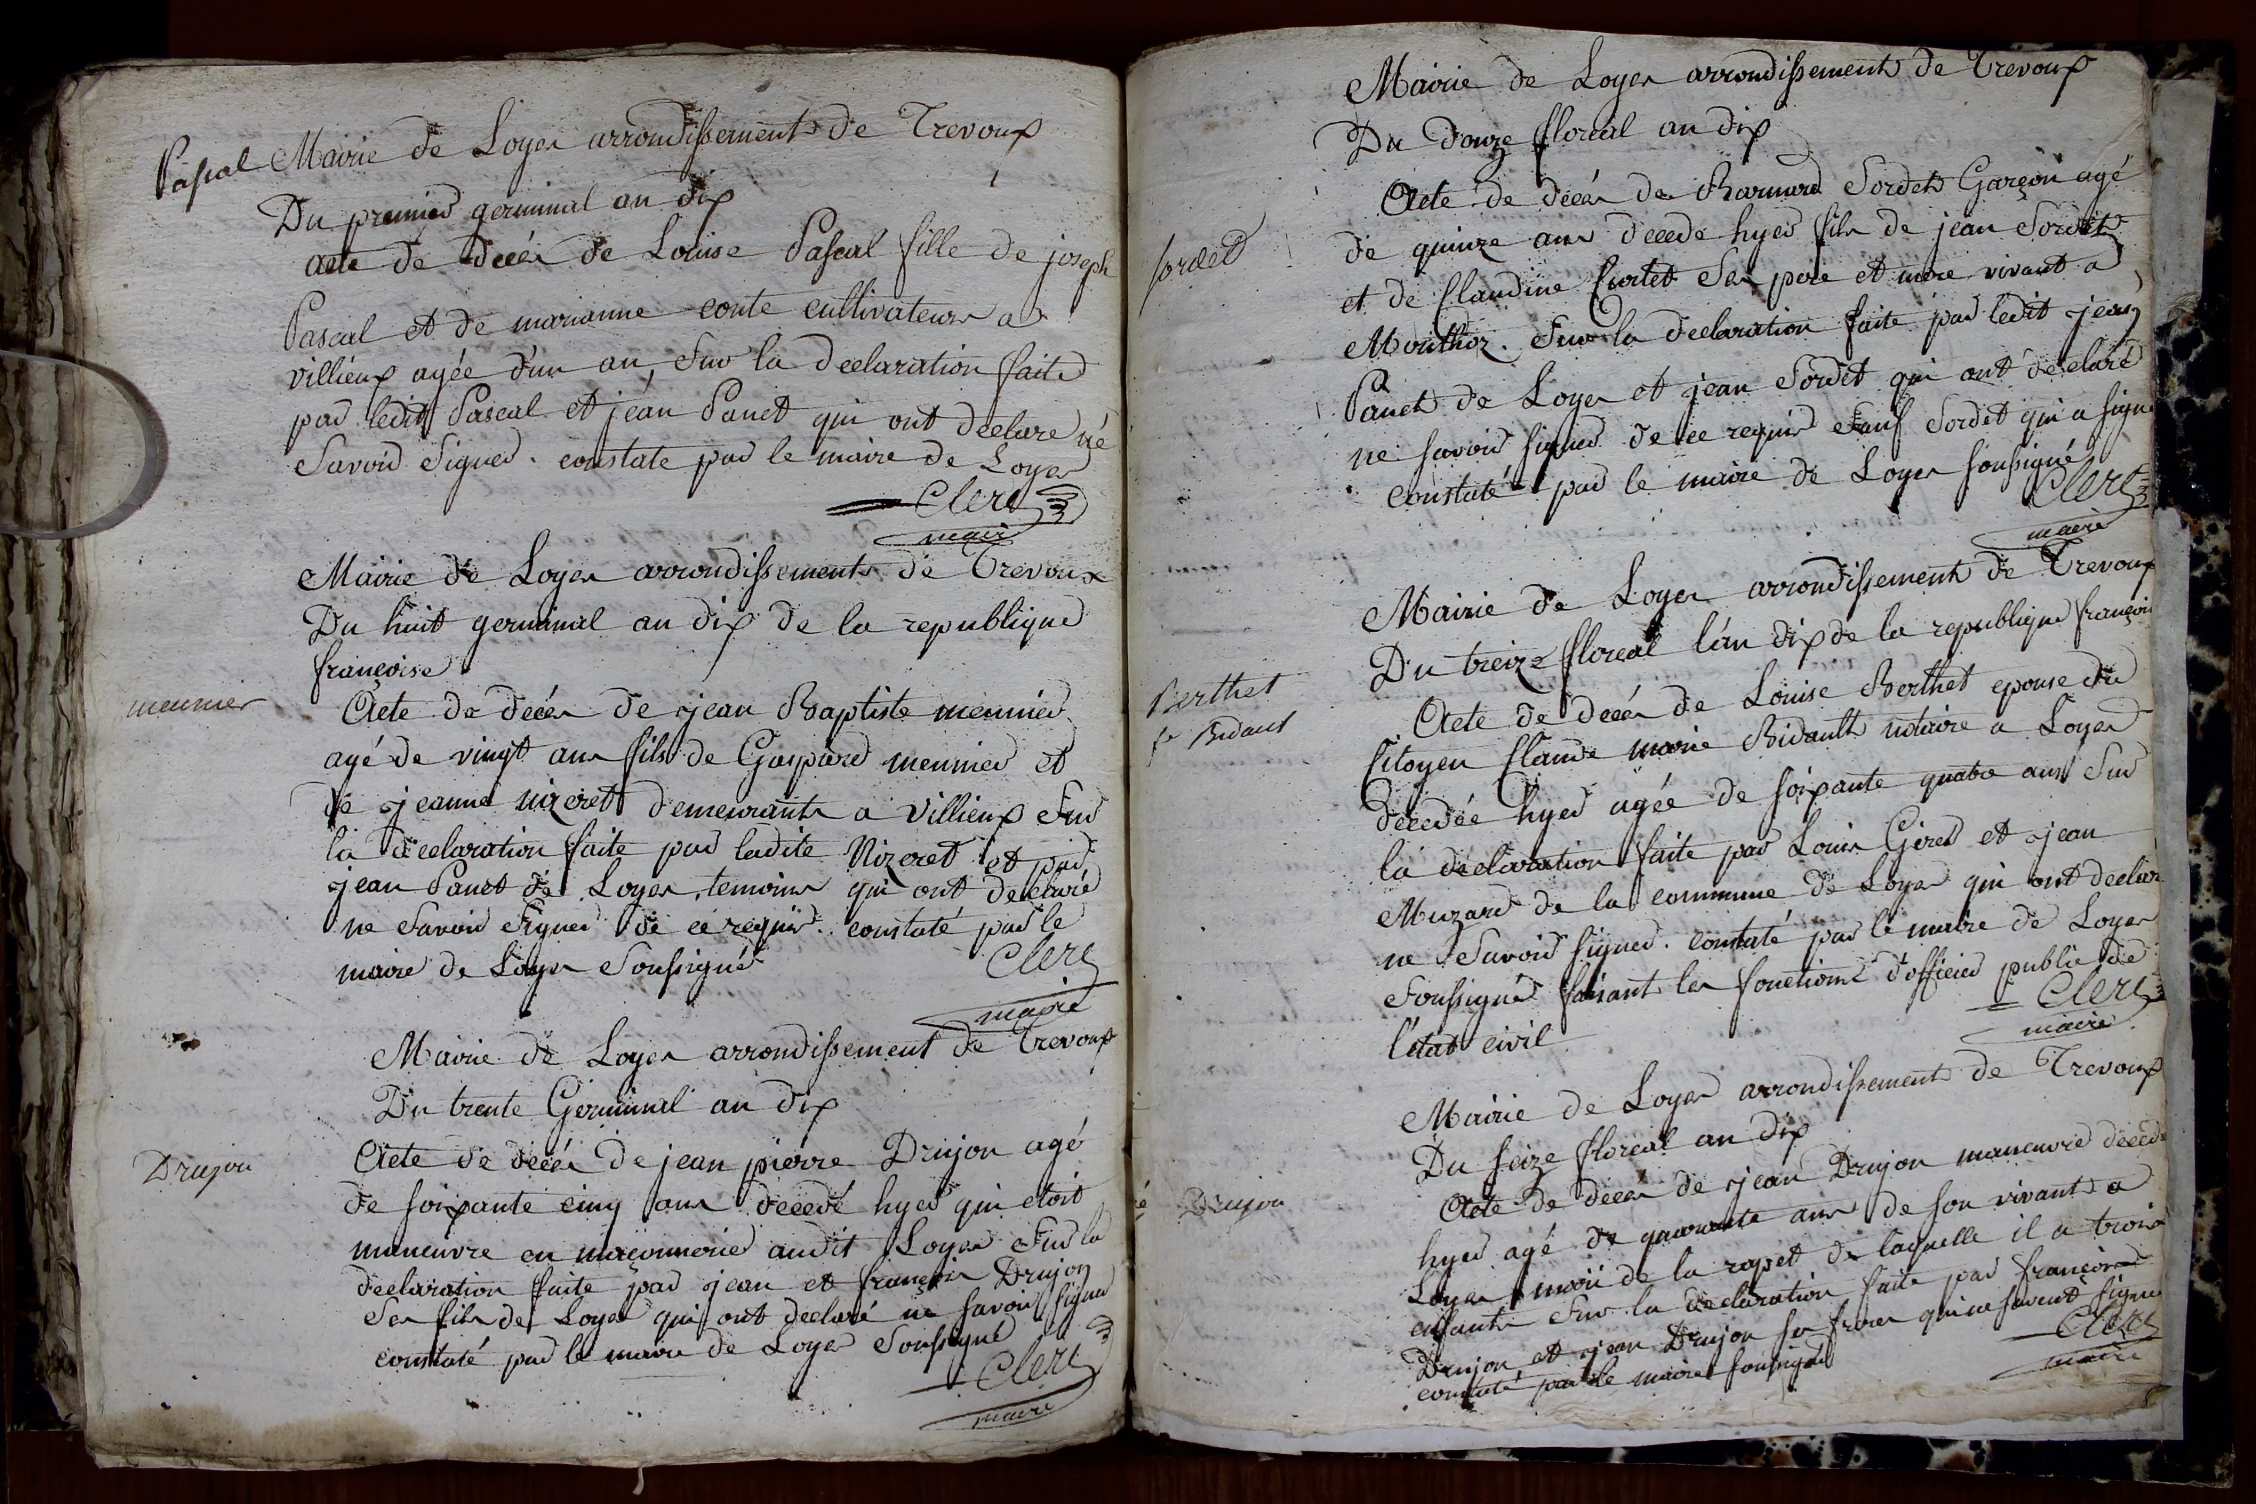 Pascal
Mairie de Loyes arrondissement de Trevoux
Du premier germinal an dix
acte de décés de Louise Pascal fille de joseph
Pascal et de marianne conte cultivateurs a
villieux agée d'un an, Sur la declaration faite
par ledit Pascal et jean Panet qui ont declaré né
Savoir Signer. constaté par le maire de Loyes
Clerc
maire
Mairie de Loyes arrondissement de Trevoux
Du huit germinal an dix de la republique
françoise
meunier
Acte de décés de jean Baptiste meunier
agé de vingt ans fils de Gaspard meunier et
de jeanne nizeret demeurants a Villieux Sur
la declaration faite par ladite Nizeret et par
jean Panet de Loyes, temoins qui ont declaré
ne Savoir Signer de ce requis. constaté par le
maire de Loyes Soussigné
Clerc
maire
Mairie de Loyes arrondissement de Trevoux
Du trente Germinal an dix
Drujon
Acte de décés de jean pierre Drujon agé
de soixante cinq ans decedé hyer qui etoit
maneuvre en maçonnerie audit Loyes Sur la
declaration faite par jean et françois Drujon
Ses fils de Loyes qui ont declaré ne savoir signer
constaté par le maire de Loyes Soussigné
Clerc
maire
Mairie de Loyes arrondissement de Trevoux
Du douze floreal an dix
Sordet
Acte de décés de Barnard Sordet Garçon agé
de quinze ans decede hyer fils de jean Sordet
et de Claudine Curtet Ses pere et mere vivant a
Monthoz. Sur la declaration faite par ledit jean
Panet de Loyes et jean Sordet qui ont declaré
ne savoir signer de ce requis Sauf Sordet qui a signé
constaté par le maire de Loyes soussigné
Clerc
maire
Mairie de Loyes arrondissement de Trevoux
Du treize floreal l'an dix de la republique françoise
Berthet
fe Bidault
Acte de décés de Louise Berthet epouse du
Citoyen Claude marie Bidault notaire a Loyes
decedée hyer agée de soixante quatre ans Sur
la declaration faite par Louis Giret et jean
Muzard de la commune de Loyes qui ont declaré
ne Savoir signer. constaté par le maire de Loyes
Soussigné faisant les fonctions d'officier public de
l'état civil
Clerc
maire
Mairie de Loyes arrondissement de Trevoux
Du seize floreal an dix
Drujon
Acte de décés de jean Drujon maneuvre decedé
hyer agé de quarante ans de son vivant a
Loyes mari de la rapet de laquelle il a trois
enfants Sur la declaration faite par françois
Drujon et jean Drujon ses freres qui ne savent signer
constaté par le maire soussigné
Clerc
maire